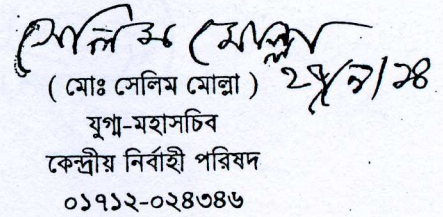 সেলিম মোল্লা
( মোঃ সেলিম মোল্লা )
যুগ্ম-মহাসচিব
কেন্দ্রীয় নির্বাহী পরিষদ
০১৭১২-০২৪৩৪৬